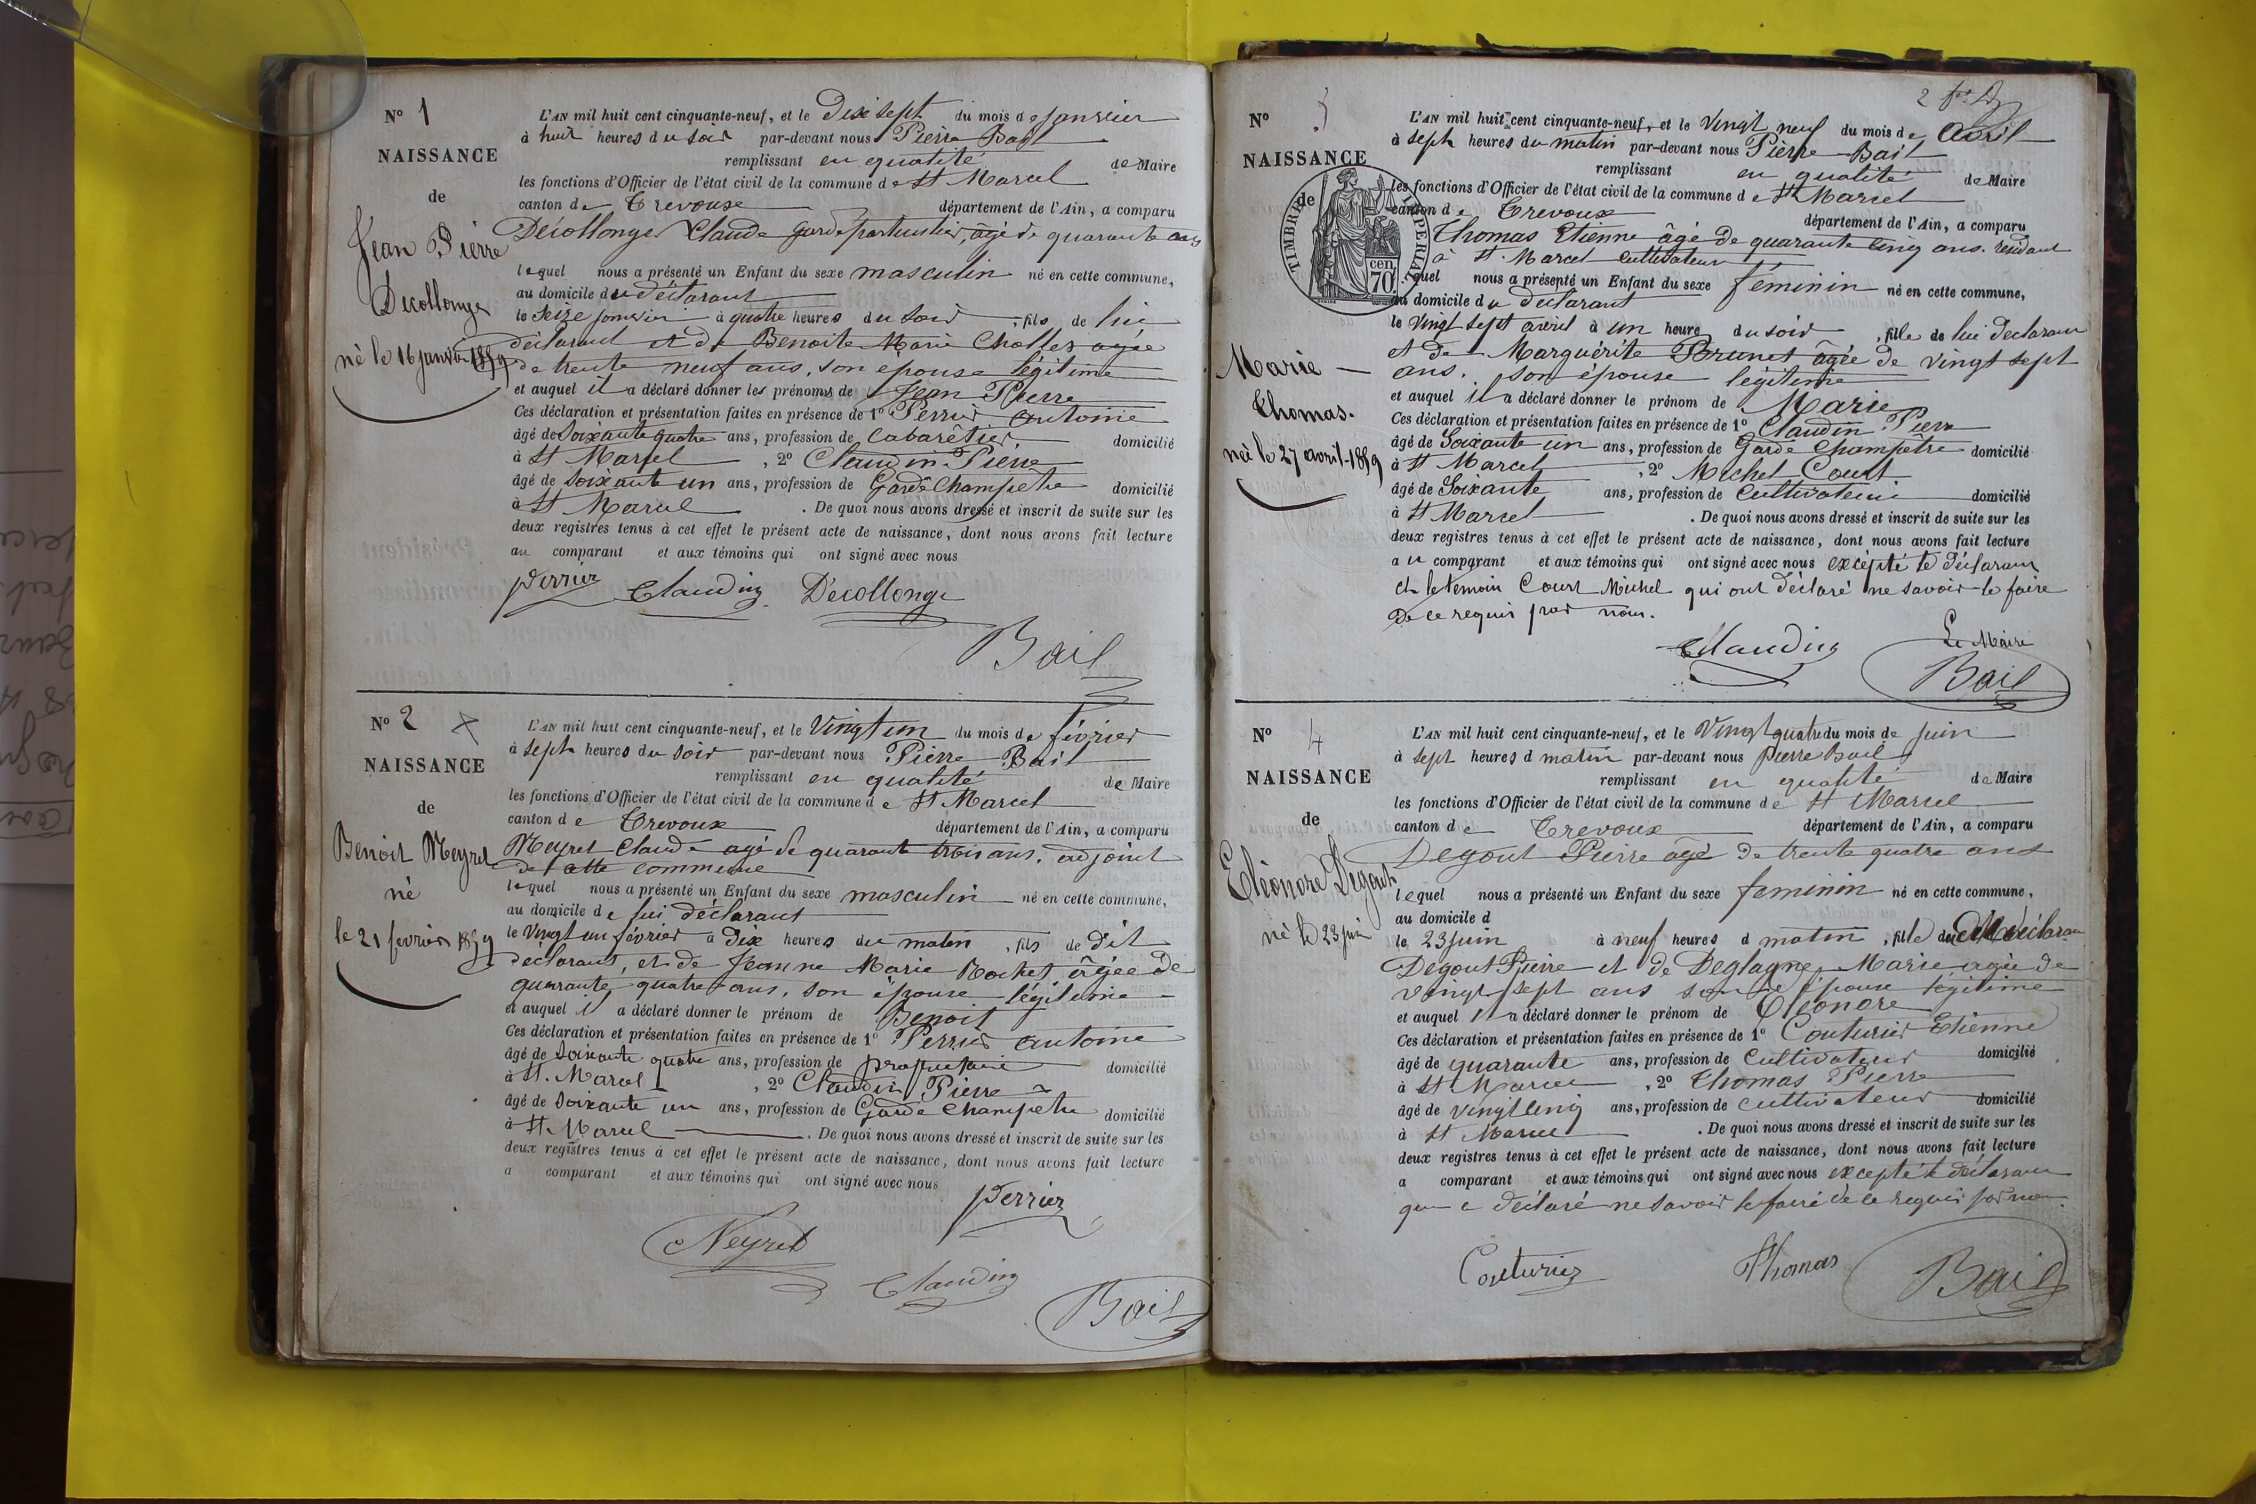 N° 1
NAISSANCE
de
Jean Pierre
Décollonge
né le 16 janvier 1859
L'AN mil huit cent cinquante-neuf, et le Dix sept du mois de janvier
à huit heures du soir par-devant nous Pierre Bail
remplissant en qualité de Maire
les fonctions d'Officier de l'état civil de la commune de St Marcel
canton de Trevoux département de l'Ain, a comparu
Décollonge Claude garde particulier, âgé de quarante ans
lequel nous a présenté un Enfant du sexe masculin né en cette commune,
au domicile du déclarant
le Seize janvier à quatre heures du soir, fils de lui
déclarant et de Benoite Marie Chollet agée
de trente neuf ans, son epouse légitime
et auquel il a déclaré donner les prénoms de Jean Pierre
Ces déclaration et présentation faites en présence de 1° Perrier antoine
âgé de Soixante quatre ans, profession de Cabarêtier domicilié
à St Marcel, 2° Claudin Pierre
âgé de Soixante un ans, profession de Garde Champetre domicilié
à St Marcel. De quoi nous avons dressé et inscrit de suite sur les
deux registres tenus à cet effet le présent acte de naissance, dont nous avons fait lecture
au comparant et aux témoins qui ont signé avec nous
Perrier Claudin Décollonge
Bail
N° 2
NAISSANCE
de
Benoit Meyret
né
le 21 fevrier 1859
L'AN mil huit cent cinquante-neuf, et le Vingt un du mois de fevrier
à sept heures du soir par-devant nous Pierre Bail
remplissant en qualité de Maire
les fonctions d'Officier de l'état civil de la commune de St Marcel
canton de Trevoux département de l'Ain, a comparu
Meyret Claude agé de quarante trois ans, adjoint
de cette commune
lequel nous a présenté un Enfant du sexe masculin né en cette commune,
au domicile de lui déclarant
le Vingt un février à dix heures du matin, fils de dit
déclarant, et de Jeanne Marie Rochet âgée de
quarante quatre ans, son épouse légitime
et auquel il a déclaré donner le prénom de Benoit
Ces déclaration et présentation faites en présence de 1° Perrier antoine
âgé de Soixante quatre ans, profession de propriétaire domicilié
à St. Marcel, 2° Claudin Pierre
âgé de Soixante un ans, profession de Garde Champetre domicilié
à St Marcel. De quoi nous avons dressé et inscrit de suite sur les
deux registres tenus à cet effet le présent acte de naissance, dont nous avons fait lecture
a comparant et aux témoins qui ont signé avec nous
Perrier
Neyret
Claudin
Bail
N° 3
NAISSANCE
de
TIMBRE IMPERIAL
70 cen
Marie
Thomas.
né le 27 avril 1859
L'AN mil huit cent cinquante-neuf, et le Vingt neuf du mois de Avril
à sept heures du matin par-devant nous Pierre Bail
remplissant en qualité de Maire
les fonctions d'Officier de l'état civil de la commune de St Marcel
canton de Trevoux département de l'Ain, a comparu
Thomas Etienne âgé de quarante cinq ans. résidant
à St. Marcel Cultivateur
lequel nous a présenté un Enfant du sexe féminin né en cette commune,
au domicile du déclarant
le Vingt sept avril à un heure du soir, fille de lui declarant
et de Marguérite Brunet âgée de vingt sept
ans. son épouse legitime
et auquel il a déclaré donner le prénom de Marie
Ces déclaration et présentation faites en présence de 1° Claudin Pierre
âgé de Soixante un ans, profession de Garde Champêtre domicilié
à St Marcel, 2° Michel Court
âgé de Soixante ans, profession de Cultivateur domicilié
à St Marcel. De quoi nous avons dressé et inscrit de suite sur les
deux registres tenus à cet effet le présent acte de naissance, dont nous avons fait lecture
au comparant et aux témoins qui ont signé avec nous excépté le déclarant
et le temoin Court Michel qui ont déclaré ne savoir le faire
de ce requis par nous.
Claudin Le Maire
Bail
N° 4
NAISSANCE
de
Eléonore Degout
né le 23 juin
L'AN mil huit cent cinquante-neuf, et le Vingt quatre du mois de juin
à sept heures d matin par-devant nous Pierre Bail
remplissant en qualité de Maire
les fonctions d'Officier de l'état civil de la commune de St Marcel
canton de Trevoux département de l'Ain, a comparu
Degout Pierre âgé de trente quatre ans
lequel nous a présenté un Enfant du sexe feminin né en cette commune,
au domicile d
le 23 juin à neuf heures d matin, fille du déclarant
Degout Pierre et de Deglagne Marie agée de
vingt sept ans son épouse légitime
et auquel il a déclaré donner le prénom de Eléonore
Ces déclaration et présentation faites en présence de 1° Couturier Etienne
âgé de quarante ans, profession de Cultivateur domicilié
à St Marcel, 2° Thomas Pierre
âgé de vingt cinq ans, profession de cultivateur domicilié
à St Marcel. De quoi nous avons dressé et inscrit de suite sur les
deux registres tenus à cet effet le présent acte de naissance, dont nous avons fait lecture
a comparant et aux témoins qui ont signé avec nous excepté le déclarant
qui a déclaré ne savoir le faire de ce requis par nou
Couturier Thomas Bail